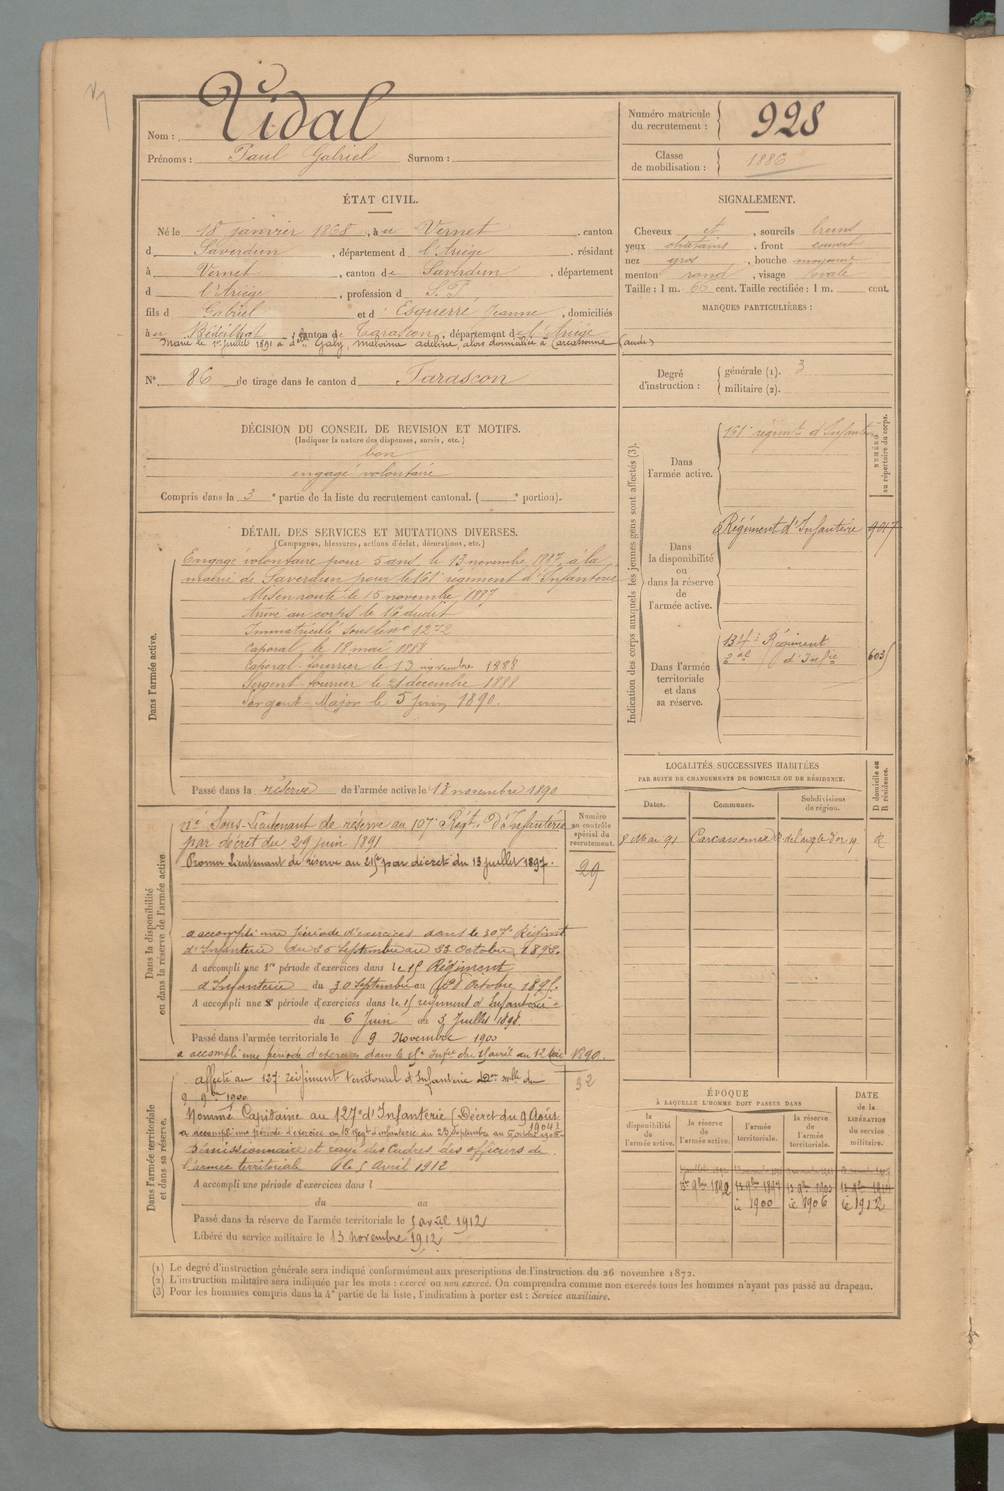 Nom : Vidal
Prénoms : Paul Gabriel Surnom :
Numéro matricule du recrutement : 928
Classe de mobilisation : 1886
ÉTAT CIVIL.
Né le 18 janvier 1868, à Vernet, canton
d Saverdun, département d l'Ariège, résidant
à Vernet, canton de Saverdun, département
d l'Ariège, profession d S. P.
fils d Gabriel et d Esquerré Jeanne, domiciliés
à Bédeilhac, canton de Tarascon, département d l'Ariège
Marié le 1er juillet 1891 à d'elle Galy, Malvina Adeline, alors domiciliée à Carcassonne (Aude)
N° 86 de tirage dans le canton d Tarascon
SIGNALEMENT.
Cheveux et, sourcils bruns
yeux chatains, front couvert
nez gros, bouche moyenne
menton rond, visage ovale
Taille : 1 m. 66 cent. Taille rectifiée : 1 m. cent.
MARQUES PARTICULIÈRES :
Degré d'instruction : générale (1). 3
militaire (2).
DÉCISION DU CONSEIL DE REVISION ET MOTIFS.
(Indiquer la nature des dispenses, sursis, etc.)
bon
engagé volontaire
Compris dans la 3e partie de la liste du recrutement cantonal. ( e portion).
DÉTAIL DES SERVICES ET MUTATIONS DIVERSES.
(Campagnes, blessures, actions d'éclat, décorations, etc.)
Dans l'armée active.
Engagé volontaire pour 5 ans le 13 novembre 1887, à la
mairie de Saverdun pour le 161e régiment d'Infanterie
Mis en route le 15 novembre 1887
Arrivé au corps le 16 dudit
Immatriculé sous le no 1272
Caporal, le 18 mai 1888
Caporal-fourrier le 13 novembre 1888
Sergent-fourrier le 21 décembre 1888
Sergent-Major le 5 juin 1890.
Passé dans la réserve de l'armée active le 13 novembre 1890
Indication des corps auxquels les jeunes gens sont affectés (3).
NUMÉRO au répertoire du corps.
Dans l'armée active.
161e régimt d'Infanterie
Dans la disponibilité ou dans la réserve de l'armée active.
Régiment d'Infanterie 9047
Dans l'armée territoriale et dans sa réserve.
134e Régiment
d'Infie 603
LOCALITÉS SUCCESSIVES HABITÉES
PAR SUITE DE CHANGEMENTS DE DOMICILE OU DE RÉSIDENCE.
Dates. Communes. Subdivisions de région. D domicile ou R résidence.
8 Mai 91 Carcassonne R. de l'aigle d'or 19 R
Dans la disponibilité ou dans la réserve de l'armée active
Numéro au contrôle spécial du recrutement.
29
né Sous-Lieutenant de réserve au 107e Régt. d'Infanterie
par décret du 29 juin 1891
Promu Lieutenant de réserve au 215e par décret du 13 juillet 1897.
a accompli une période d'exercices dans le 307e Régiment
d'Infanterie du 26 Septembre au 23 Octobre 1893.
A accompli une 1re période d'exercices dans le 15 Régiment
d'Infanterie du 30 Septembre au Octobre 1895.
A accompli une 2e période d'exercices dans le 15 régiment d'Infanterie
du 6 Juin au 3 Juillet 1898.
Passé dans l'armée territoriale le 9 Novembre 1900
a accompli une période d'exercices dans le 15e Infie du 15 avril au 12 Mai 1890.
Dans l'armée territoriale et dans sa réserve.
32
affecté au 127 régiment territorial d'Infanterie
9 9bre 1900
Nommé Capitaine au 127e d'Infanterie (Décret du 9 Août
1904)
a accompli une période d'exercice au 15 Regt d'infanterie du 23 Septembre au
Démissionnaire et rayé des Cadres des officiers de
l'armée territoriale le 5 Avril 1912
A accompli une période d'exercices dans l
du au
Passé dans la réserve de l'armée territoriale le 5 avril 1912
Libéré du service militaire le 13 novembre 1912
ÉPOQUE
À LAQUELLE L'HOMME DOIT PASSER DANS
la disponibilité de l'armée active. la réserve de l'armée active. l'armée territoriale. la réserve de l'armée territoriale.
DATE de la LIBÉRATION du service militaire.
13 9bre 1892 13 9bre 1897 13 9bre 1903
le 1900 le 1906 le 1912
(1) Le degré d'instruction générale sera indiqué conformément aux prescriptions de l'instruction du 26 novembre 1872.
(2) L'instruction militaire sera indiquée par les mots : exercé ou non exercé. On comprendra comme non exercés tous les hommes n'ayant pas passé au drapeau.
(3) Pour les hommes compris dans la 4e partie de la liste, l'indication à porter est : Service auxiliaire.